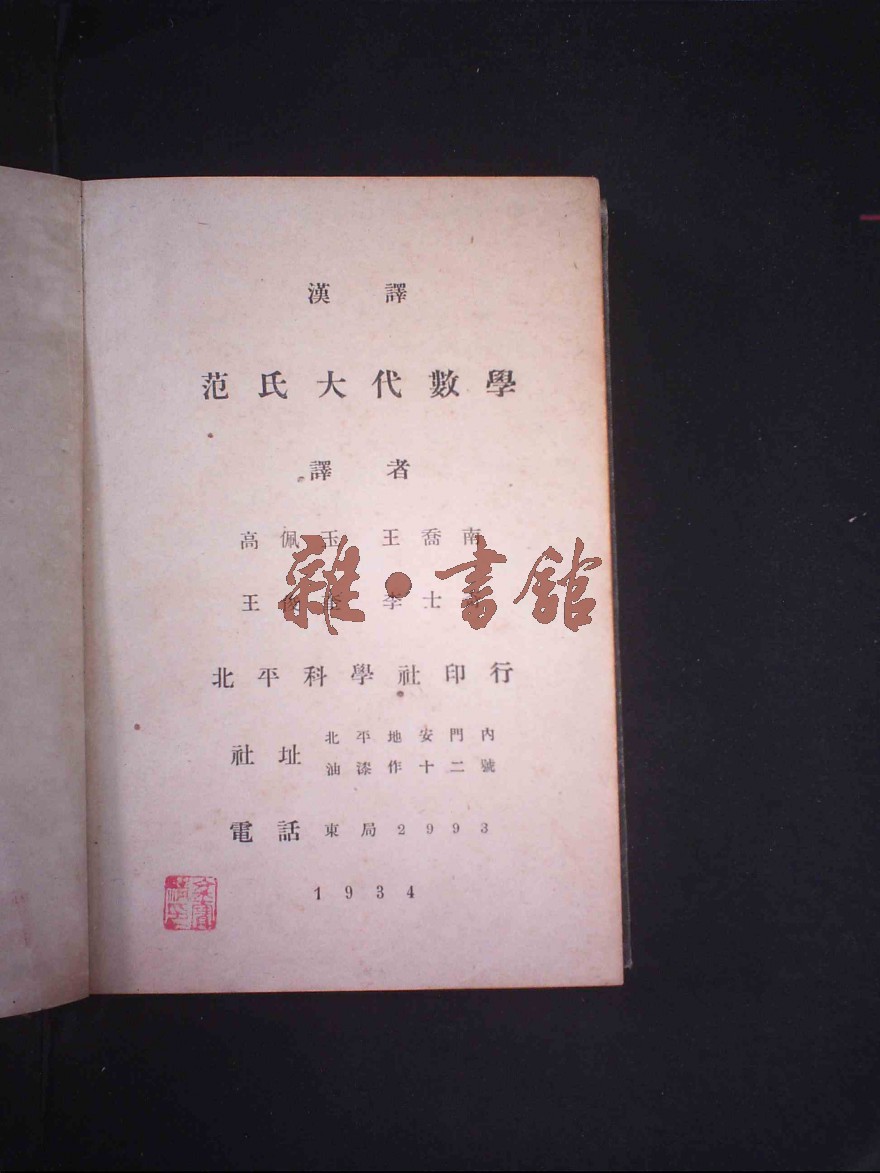 漢譯
范氏大代數學
譯者
高佩玉 王喬南
王俊奎 李士奇
雜·書館
北平科學社印行
社址 北平地安門內
油漆作十二號
電話 東局2993
1934